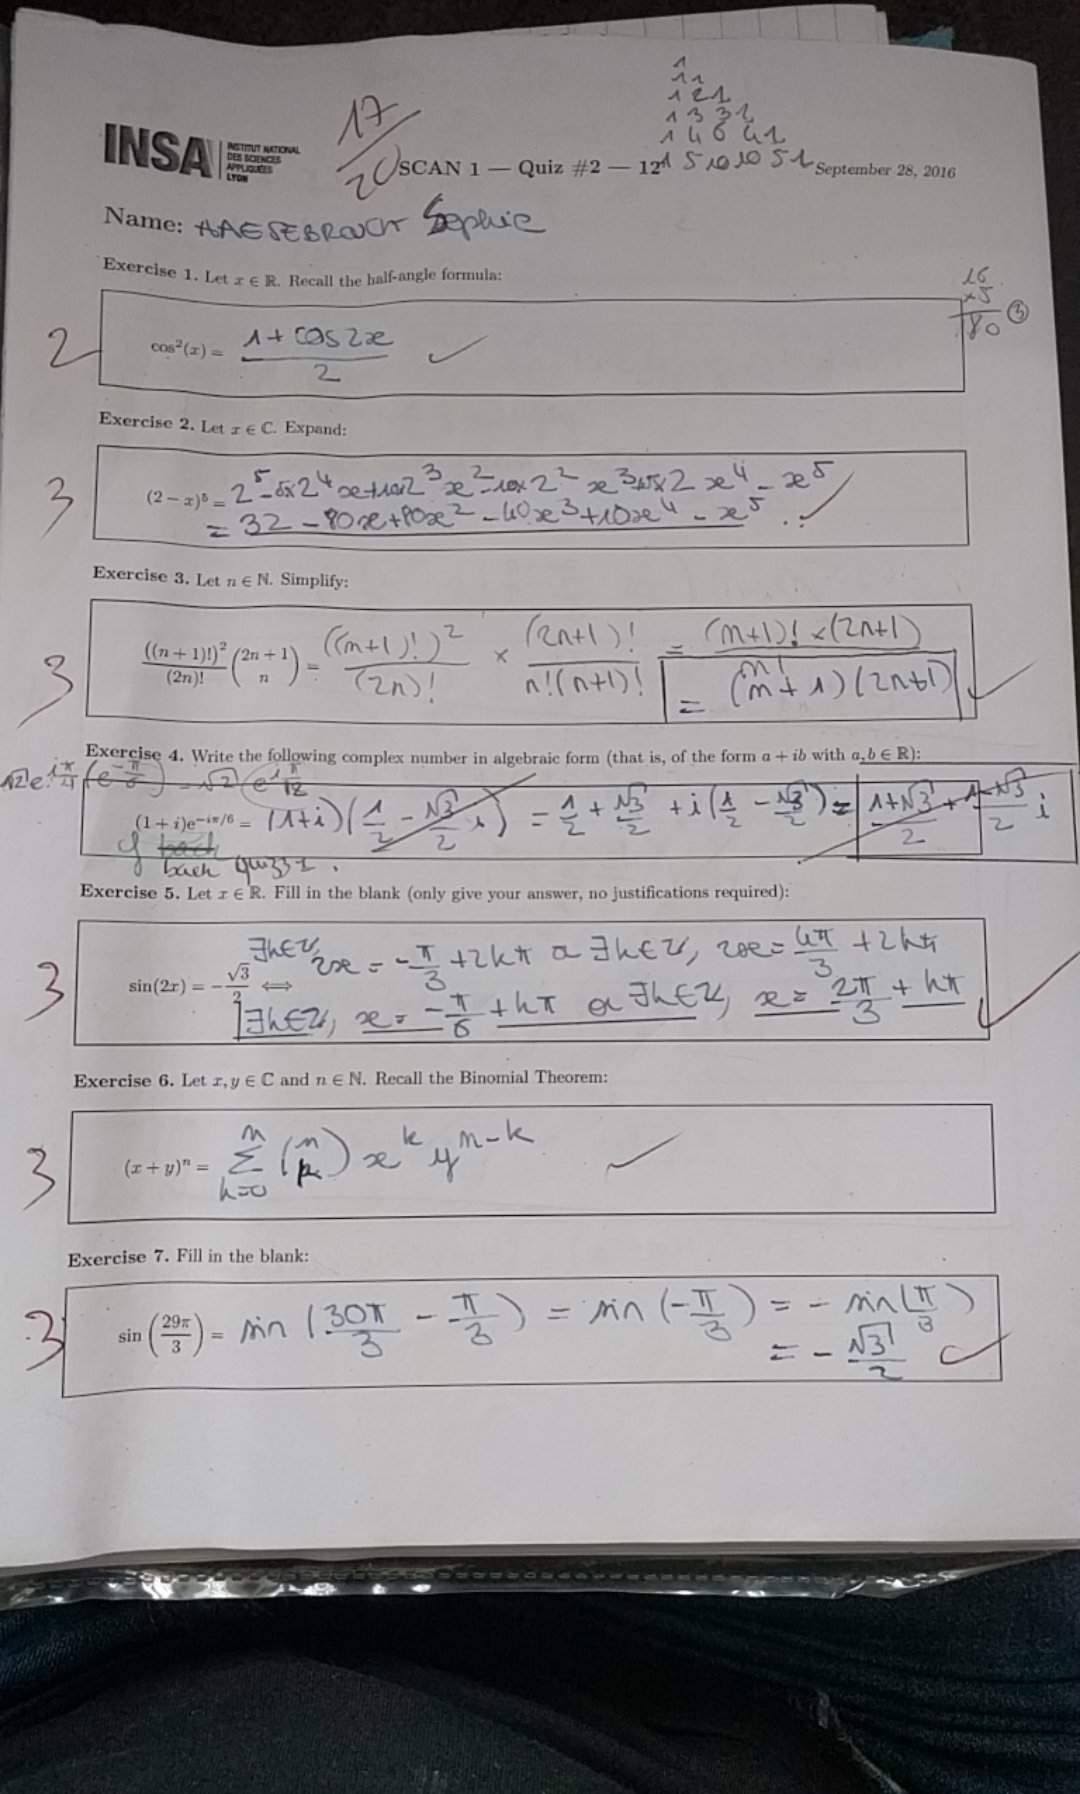 1
1 1
1 2 1
1 3 3 1
1 4 6 4 1
1 5 10 10 5 1
17/20
INSA INSTITUT NATIONAL DES SCIENCES APPLIQUÉES LYON
SCAN 1 — Quiz #2 — 12' September 28, 2016
Name: HAESEBROUCK Sophie
Exercise 1. Let x ∈ ℝ. Recall the half-angle formula:
16
×5
80 ③
2 cos²(x) = (1 + cos 2x)/2 ✓
Exercise 2. Let x ∈ ℂ. Expand:
3 (2 − x)⁵ = 2⁵ − 5×2⁴x + 10×2³x² − 10×2²x³ + 5×2x⁴ − x⁵
= 32 − 80x + 80x² − 40x³ + 10x⁴ − x⁵. ✓
Exercise 3. Let n ∈ ℕ. Simplify:
3 ((n + 1)!)²/(2n)! (2n + 1 n) = ((n+1)!)²/(2n)! × (2n+1)!/n!(n+1)! = (n+1)! × (2n+1)/n!
= (n+1)(2n+1) ✓
Exercise 4. Write the following complex number in algebraic form (that is, of the form a + ib with a, b ∈ ℝ):
√2 e^{iπ/4} (e^{-π/6}) = √2 (e^{iπ/12}
(1 + i)e^{−iπ/6} = (1+i)(1/2 − √3/2 i) = 1/2 + √3/2 + i(1/2 − √3/2) = (1+√3)/2 + (1−√3)/2 i
cf back
back quizz 1.
Exercise 5. Let x ∈ ℝ. Fill in the blank (only give your answer, no justifications required):
3 sin(2x) = −√3/2 ⟺ ∃k∈ℤ, 2x = −π/3 + 2kπ or ∃k∈ℤ, 2x = 4π/3 + 2kπ
∃k∈ℤ, x = −π/6 + kπ or ∃k∈ℤ, x = 2π/3 + kπ ✓
Exercise 6. Let x, y ∈ ℂ and n ∈ ℕ. Recall the Binomial Theorem:
3 (x + y)ⁿ = Σ_{k=0}^{n} (n k) x^k y^{n−k} ✓
Exercise 7. Fill in the blank:
3 sin(29π/3) = sin(30π/3 − π/3) = sin(−π/3) = − sin(π/3)
= −√3/2 ✓